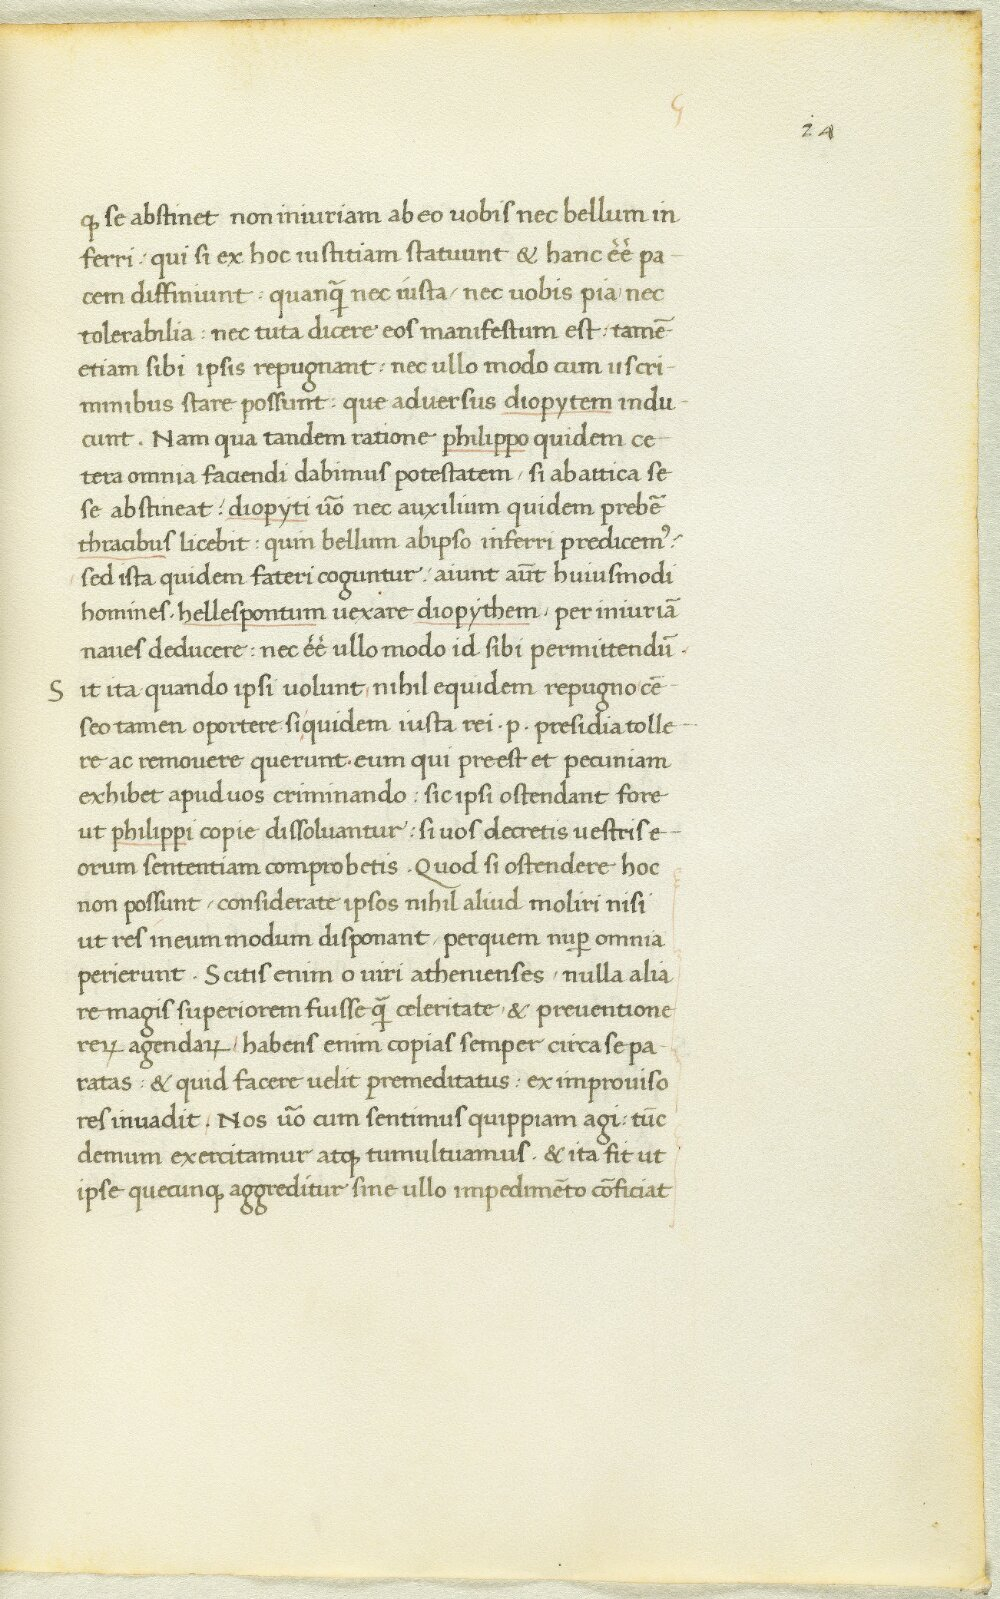 24
ꝙ se abstinet non iniuriam ab eo uobis nec bellum in
ferri : qui si ex hoc iustitiam statuunt & hanc ēē pa-
cem diffiniunt : quanꝗ̄ nec iusta / nec uobis pia / nec
tolerabilia : nec tuta dicere eos manifestum est : tamē
etiam sibi ipsis repugnant : nec ullo modo cum iis cri-
minibus stare possunt : que aduersus diopytem indu-
cunt . Nam qua tandem ratione philippo quidem ce-
tera omnia faciendi dabimus potestatem / si ab attica se
se abstineat : diopyti uō nec auxilium quidem prebē
thracibus licebit : quin bellum ab ipso inferri predicemꝰ :
sed ista quidem fateri coguntur / aiunt aūt huiusmodi
homines . hellespontum uexare diopythem / per iniuriā
naues deducere : nec ēē ullo modo id sibi permittendū .
Sit ita quando ipsi uolunt / nihil equidem repugno / cē-
seo tamen oportere siquidem iusta rei . p . presidia tolle-
re ac remouere querunt . eum qui preest et pecuniam
exhibet apud uos criminando : sic ipsi ostendant fore
ut philippi copie dissoluantur : si uos decretis uestris e-
orum sententiam comprobetis . Quod si ostendere hoc
non possunt / considerate ipsos nihil aliud moliri nisi
ut res in eum modum disponant / per quem nuꝑ omnia
perierunt . Scitis enim o uiri athenienses / nulla alia
re magis superiorem fuisse ꝗ̄ celeritate / & preuentione
reꝝ agendaꝝ / habens enim copias semper circa se pa-
ratas : & quid facere uelit premeditatus : ex improuiso
res inuadit . Nos uō cum sentimus quippiam agi : tūc
demum exercitamur atꝙ tumultuamus . & ita fit ut
ipse quecunꝙ aggreditur sine ullo impedimēto cōficiat